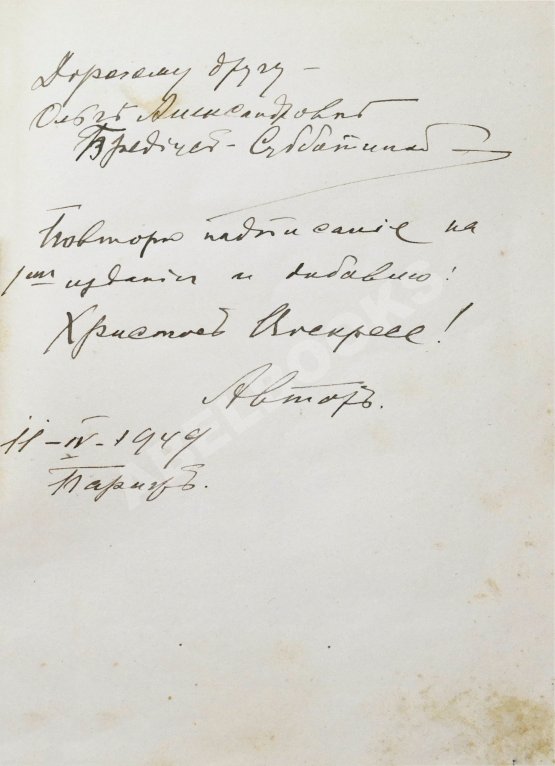 Дорогому другу –
Ольгѣ Александровнѣ
Бредіусъ-Субботиной
Повторю надписаніе на
1ом изданіи и добавлю:
Христосъ Воскресе!
Авторъ.
11-IV-1949
Парижъ.
ABELBOOKS